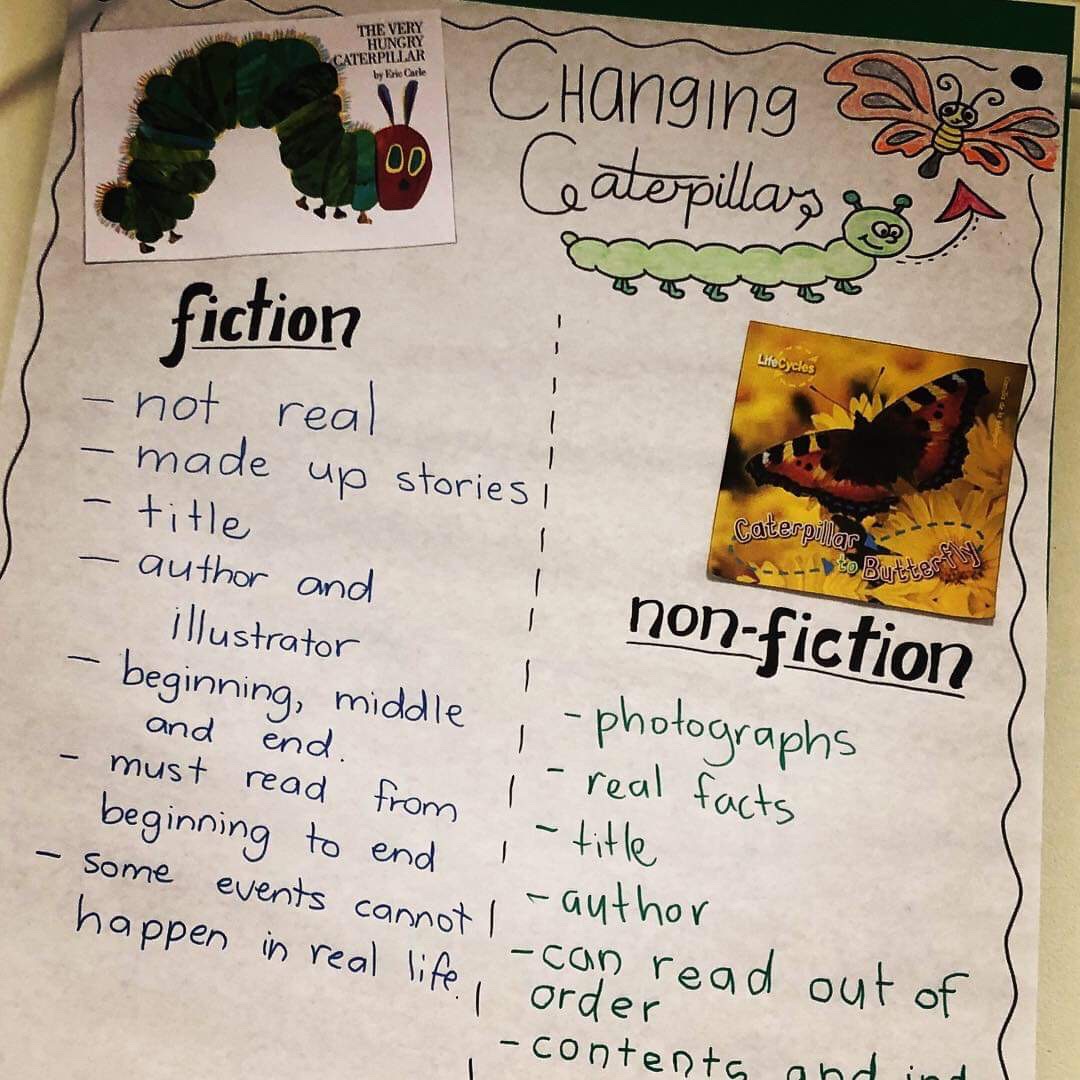 THE VERY
HUNGRY
CATERPILLAR
by Eric Carle
Changing
Caterpillars
fiction
- not real
- made up stories
- title
- author and
illustrator
- beginning, middle
and end.
- must read from
beginning to end
- some events cannot
happen in real life.
LifeCycles
Caterpillar
to Butterfly
non-fiction
- photographs
- real facts
- title
- author
- can read out of
order
- contents and